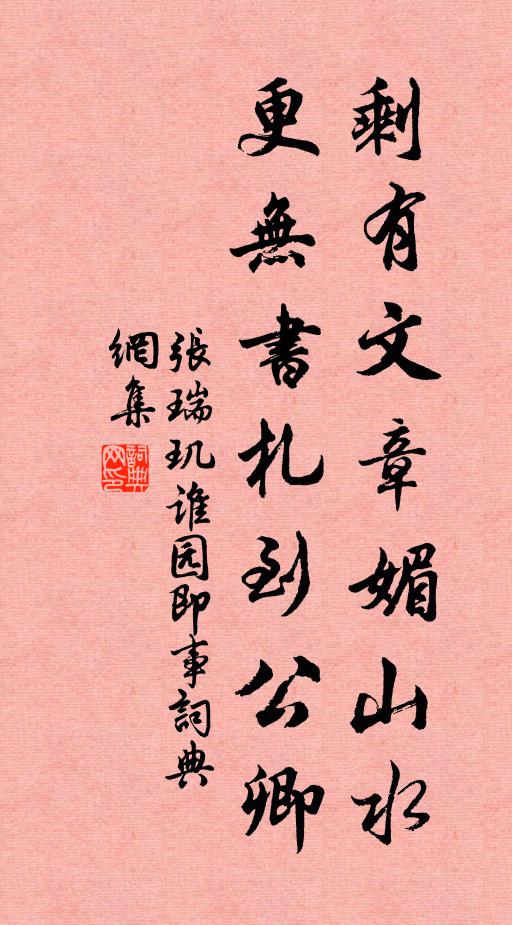 剩有文章媚山水
更無書札到公卿
張瑞玑谁园即事詞典
網集
詞典
网印